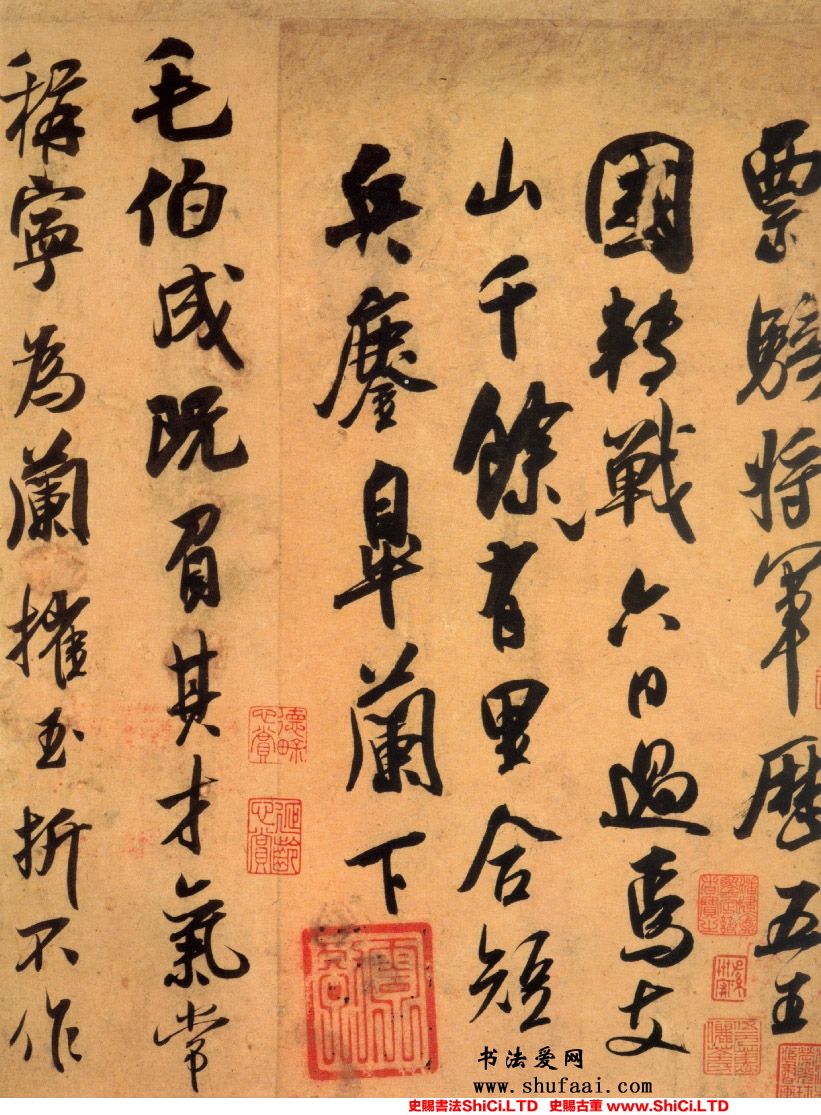 票騎將軍歷五王
國轉戰六日過焉支
山千餘有里合短
兵鏖皋蘭下
毛伯成既負其才氣常
稱寧為蘭摧玉折不作
德畬心賞
延齡心賞
书法爱网
www.shufaai.com
史賜書法ShiCi.LTD 史賜古董 www.ShiCi.LTD